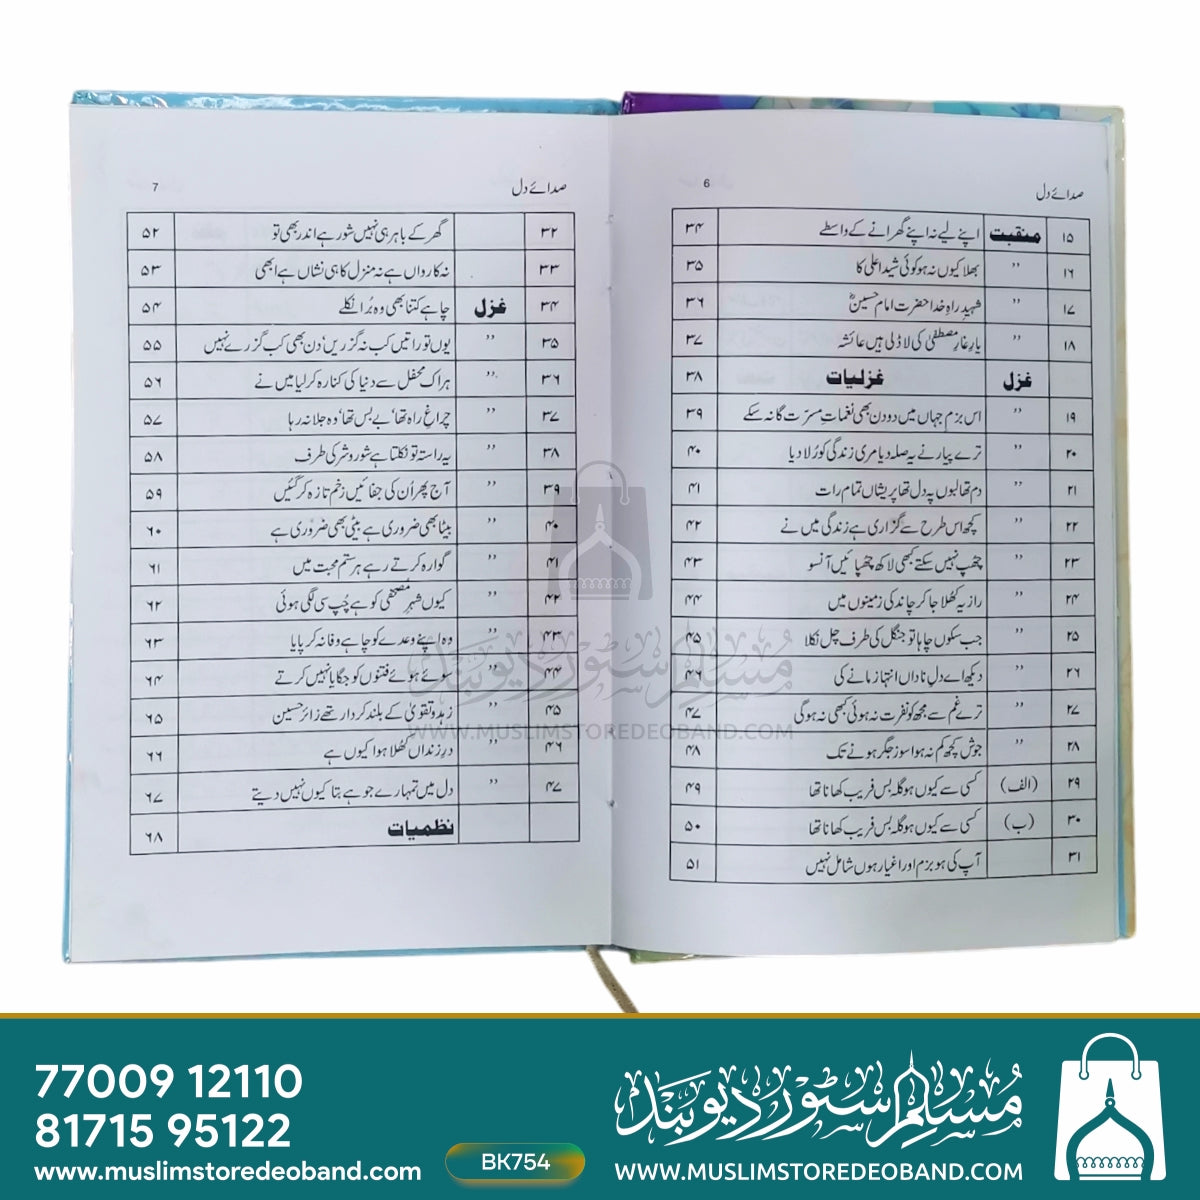 صدائے دل 6
۱۵ منقبت اپنے لیے نہ اپنے گھرانے کے واسطے ۳۴
۱۶ ” بھلا کیوں نہ ہو کوئی شیدا علی کا ۳۵
۱۷ ” شہیدِ راہِ خدا حضرت امام حسینؓ ۳۶
۱۸ ” یارِ غارِ مصطفیٰ کی لاڈلی ہیں عائشہ ۳۷
غزل غزلیات ۳۸
۱۹ ” اس بزم جہاں میں دو دن بھی نغماتِ مسرّت گا نہ سکے ۳۹
۲۰ ” ترے پیار نے یہ صلہ دیا مری زندگی کو رُلا دیا ۴۰
۲۱ ” دم تھا لبوں پہ دل تھا پریشاں تمام رات ۴۱
۲۲ ” کچھ اس طرح سے گزاری ہے زندگی میں نے ۴۲
۲۳ ” چھپ نہیں سکتے کبھی لاکھ چھپائیں آنسو ۴۳
۲۴ ” راز یہ کھلا جا کر چاند کی زمینوں میں ۴۴
۲۵ ” جب سکوں چاہا تو جنگل کی طرف چل نکلا ۴۵
۲۶ ” دیکھ اے دلِ ناداں انتہا زمانے کی ۴۶
۲۷ ” ترے غم سے مجھ کو نفرت نہ ہوئی کبھی نہ ہوگی ۴۷
۲۸ ” جوش کچھ کم نہ ہوا سوز جگر ہونے تک ۴۸
۲۹ (الف) کسی سے کیوں ہو گلہ بس فریب کھانا تھا ۴۹
۳۰ (ب) کسی سے کیوں ہو گلہ بس فریب کھانا تھا ۵۰
۳۱ آپ کی ہو بزم اور اغیار ہوں شامل نہیں ۵۱
صدائے دل 7
۳۲ گھر کے باہر ہی نہیں شور ہے اندر بھی تو ۵۲
۳۳ نہ کارواں ہے نہ منزل کا ہی نشاں ہے ابھی ۵۳
۳۴ غزل چاہے کتنا بھی وہ بُرا نکلے ۵۴
۳۵ ” یوں تو راتیں کب نہ گزریں دن بھی کب گزرے نہیں ۵۵
۳۶ ” ہر اک محفل سے دنیا کی کنارہ کر لیا میں نے ۵۶
۳۷ ” چراغِ راہ تھا، بے بس تھا، وہ جلا نہ رہا ۵۷
۳۸ ” یہ راستہ تو نکلتا ہے شور و شر کی طرف ۵۸
۳۹ ” آج پھر اُن کی جفائیں زخم تازہ کر گئیں ۵۹
۴۰ ” بیٹا بھی ضروری ہے بیٹی بھی ضروری ہے ۶۰
۴۱ ” گوارہ کرتے رہے ہر ستم محبت میں ۶۱
۴۲ ” کیوں شہرِ مصحفی کو ہے چُپ سی لگی ہوئی ۶۲
۴۳ ” وہ اپنے وعدے کو چاہے وفا نہ کر پایا ۶۳
۴۴ ” سوئے ہوئے فتنوں کو جگایا نہیں کرتے ۶۴
۴۵ ” زہد و تقویٰ کے بلند کردار تھے زائر حسین ۶۵
۴۶ ” درِ زنداں کُھلا ہوا کیوں ہے ۶۶
۴۷ ” دل میں تمہارے جو ہے بتا کیوں نہیں دیتے ۶۷
نظمیات ۶۸
مسلم سٹور دیوبند
WWW.MUSLIMSTOREDEOBAND.COM
77009 12110
81715 95122
www.muslimstoredeoband.com
BK754
مسلم سٹور دیوبند
WWW.MUSLIMSTOREDEOBAND.COM